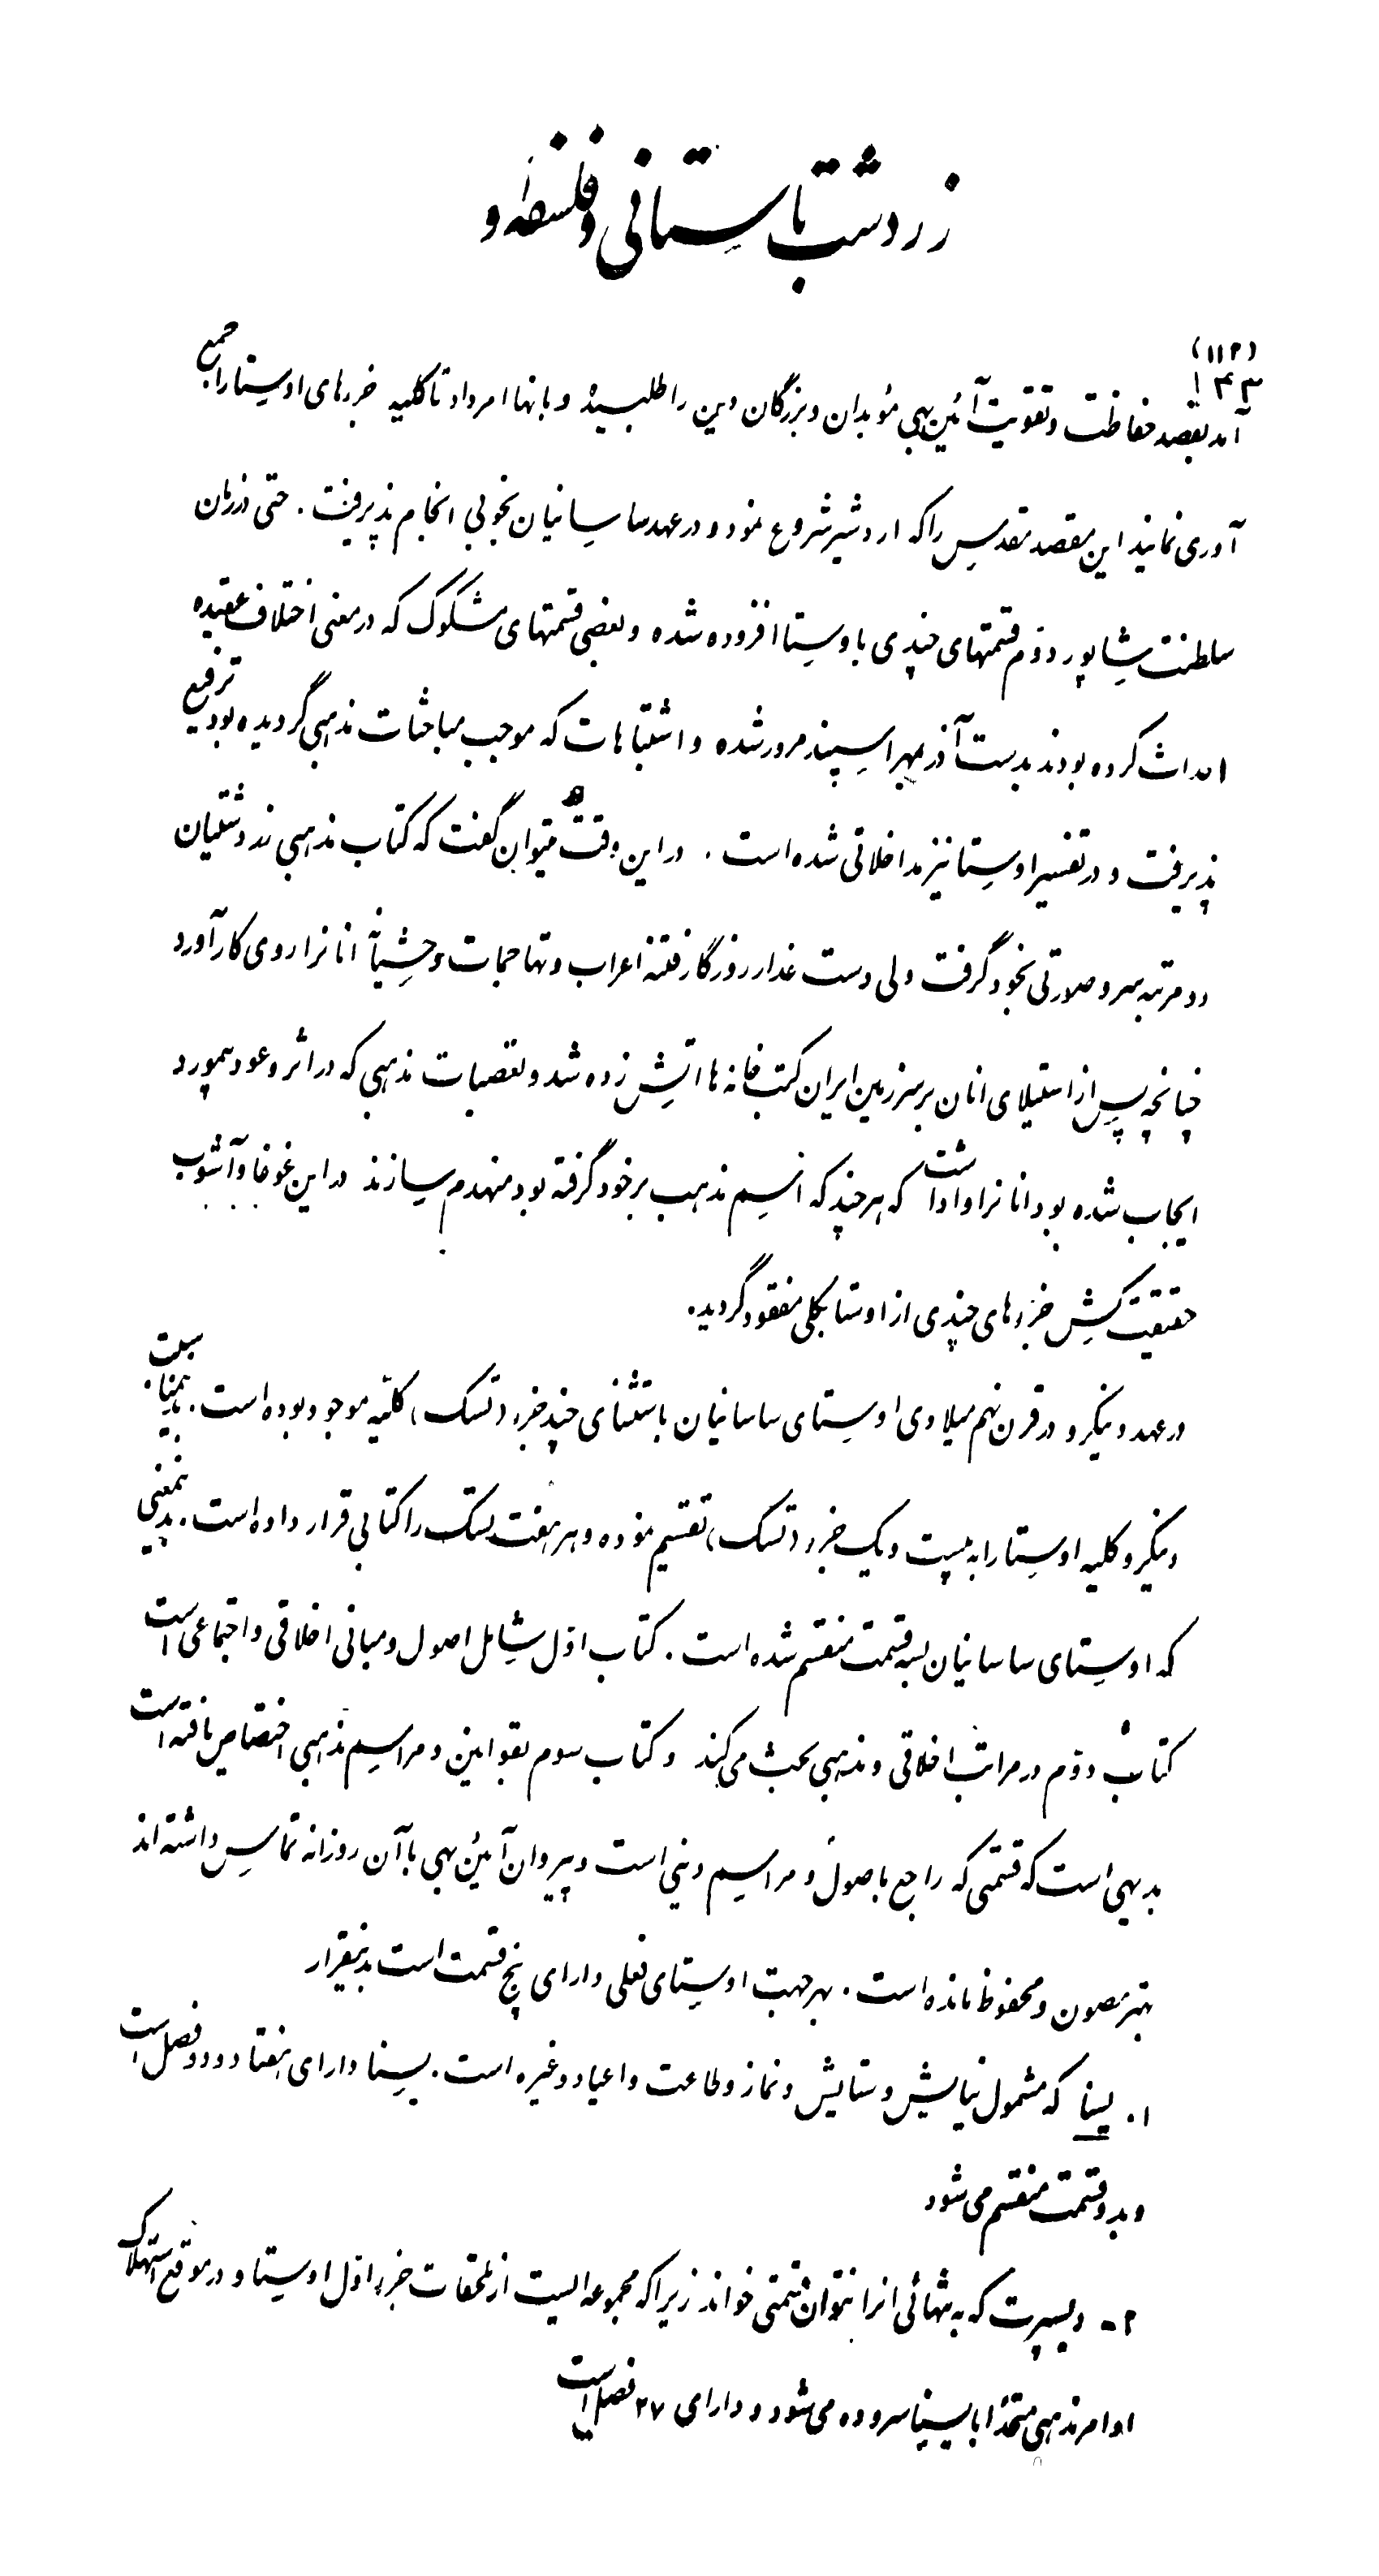 زردشت باستانی و فلسفه او
(۱۱۲)
۱۴۳
آمد بقصد حفاظت و تقویت آئین بهی مؤبدان و بزرگان دین را طلبیده و بانها امر داد تا کلیه جزءهای اوستا را جمع
آوری نمایند این مقصد مقدس را که اردشیر شروع نمود و در عهد ساسانیان بخوبی انجام پذیرفت. حتی در زمان
سلطنت شاپور دوم قسمتهای چندی باوستا افزوده شده و بعضی قسمتهای مشکوک که در معنی اختلاف عقیده
احداث کرده بودند بدست آذر مهر اسپند مرور شده و اشتباهات که موجب مباحثات مذهبی گردیده بود ترفیع
پذیرفت و در تفسیر اوستا نیز مداخلاتی شده است. در این وقت میتوان گفت که کتاب مذهبی زردشتیان
دو مرتبه سر و صورتی بخود گرفت ولی دست غدار روزگار فتنه اعراب و تهاجمات وحشیانه آنانرا روی کار آورد
چنانچه پس از استیلای انان بر سرزمین ایران کتب خانه ها اتش زده شد و تعصبات مذهبی که در اثر وعود بمورد
ایجاب شده بود انانرا وا داشت که هر چند که اسم مذهب بر خود گرفته بود منهدم سازند در این غوغا و آشوب
حقیقت کش جزءهای چندی از اوستا بکلی مفقود گردید.
در عهد دینکرد در قرن نهم میلادی اوستای ساسانیان باستثنای چند جزء (نسک) کلیه موجود بوده است. بدینمناسبت
دینکرد کلیه اوستا را به بیست و یک جزء (نسک) تقسیم نموده و هر هفت نسک را کتابی قرار داده است. بدینمعنی
که اوستای ساسانیان بسه قسمت منقسم شده است. کتاب اول شامل اصول و مبانی اخلاقی و اجتماعی است
کتاب دوم در مراتب اخلاقی و مذهبی بحث می کند و کتاب سوم بقوانین و مراسم مذهبی اختصاص یافته است
بدیهی است که قسمتی که راجع باصول و مراسم دینی است و پیروان آئین بهی با آن روزانه تماس داشته اند
بهتر مصون و محفوظ مانده است. بهر جهت اوستای فعلی دارای پنج قسمت است بدینقرار
۱. یسنا که مشمول نیایش و ستایش و نماز و طاعت و اعیاد و غیره است. یسنا دارای هفتاد و دو فصل است
و بدو قسمت منقسم می شود
۲- ویسپرت که به تنهائی انرا نتوان قسمتی خواند زیرا که مجموعه ایست از ملحقات جزء اول اوستا و در موقع استهلاک
اوامر مذهبی متحداً با یسنا سروده می شود و دارای ۲۷ فصل است